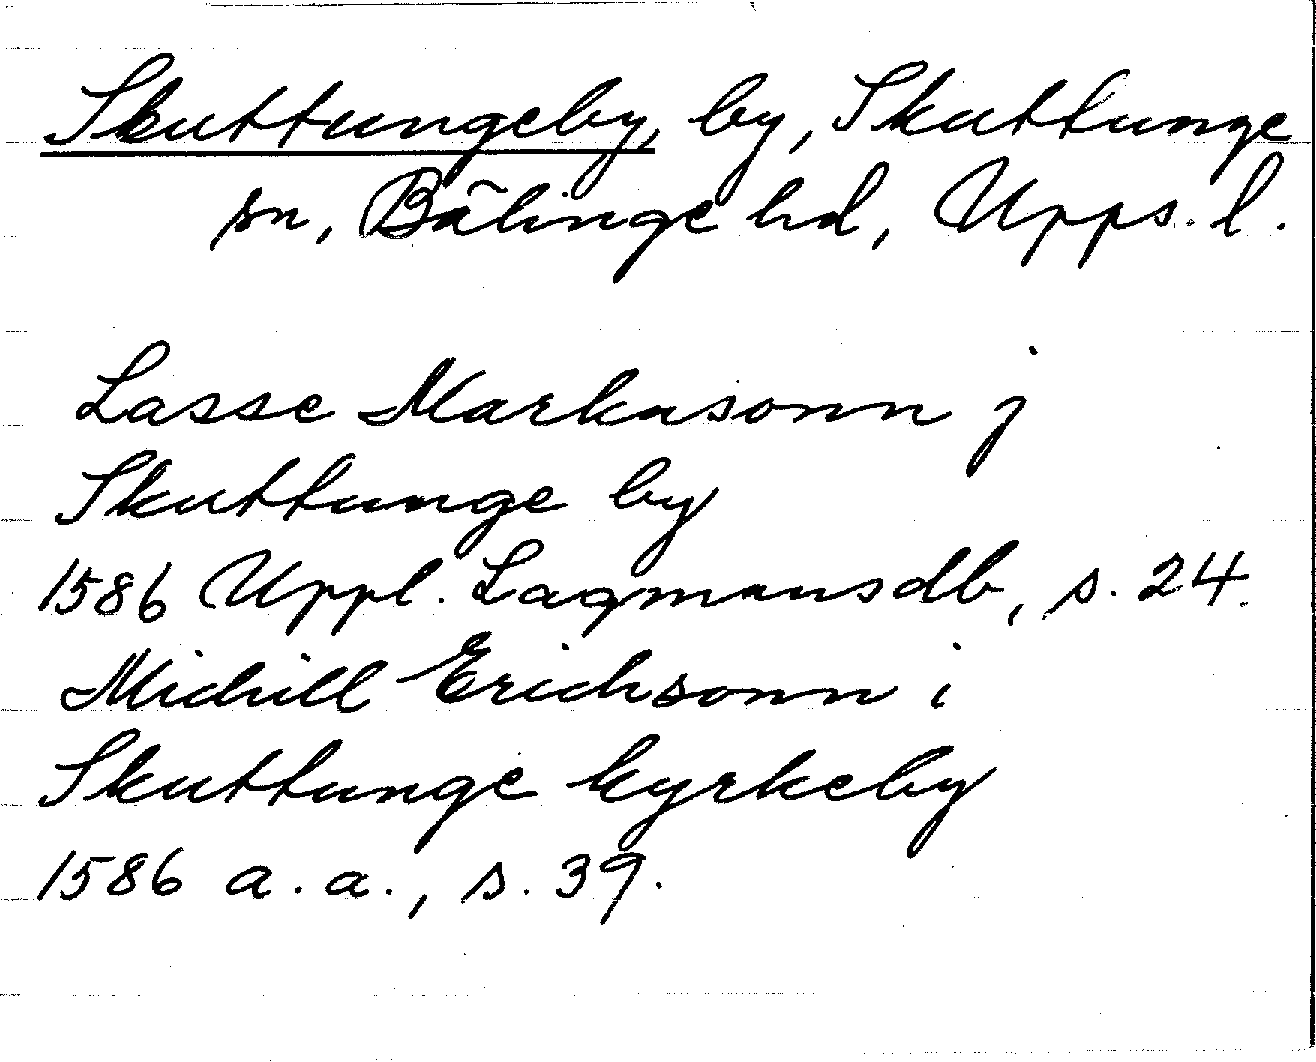 Skuttungeby, by, Skuttunge
sn, Bälinge hd, Upps. l.
Lasse Markusonn j
Skuttunge by
1586 Uppl. Lagmansdb, s. 24.
Michill Erichsonn i
Skuttunge kyrkeby
1586 a. a., s. 39.